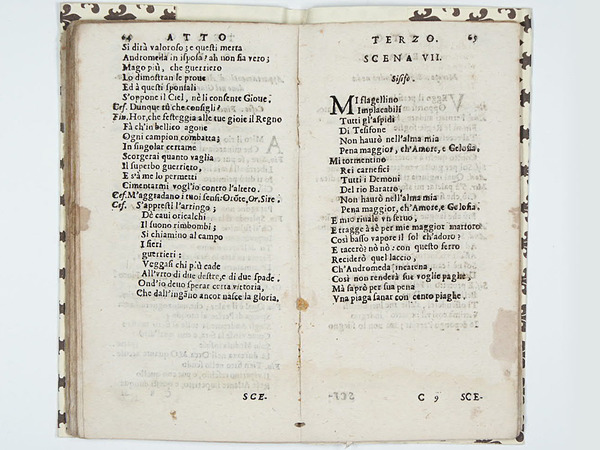 64 ATTO
Si dirà valoroso; e questi merta
Andromeda in isposa? ah non fia vero;
Mago più, che guerriero
Lo dimostran le proue
Ed à questi sponsali
S'oppone il Ciel, nè li consente Gioue.
Cef. Dunque tù che consigli?
Fin. Hor, che festeggia alle tue gioie il Regno
Fà ch'in bellico agone
Ogni campion combatta;
In singolar certame
Scorgerai quanto vaglia
Il superbo guerriero,
E s'à me lo permetti
Cimentarmi vogl'io contro l'altero.
Cef. M'aggradano i tuoi sensi: Orõte, Or. Sire.
Cef. S'appresti l'arringo;
De caui oricalchi
Il suono rimbombi;
Si chiamino al campo
I fieri
guerrieri:
Veggasi chi più cade
All'vrto di due destre, e di due spade.
Ond'io deuo sperar certa vittoria,
Che dall'ingãno ancor nasce la gloria.
SCE-
TERZO. 65
SCENA VII.
Sisifo.
MI flagellino
Implacabili
Tutti gl'aspidi
Di Tesifone
Non haurò nell'alma mia
Pena maggior, ch'Amore, e Gelosia.
Mi tormentino
Rei carnefici
Tutti i Demoni
Del rio Baratro,
Non haurò nell'alma mia
Pena maggior, ch'Amore, e Gelosia.
E mio riuale vn seruo,
E tragge à sè per mie maggior martoro
Così basso vapore il sol ch'adoro?
E tacerò? nò: nò: con questo ferro
Reciderò quel laccio,
Ch'Andromeda incatena,
Così non renderà sue voglie paghe.
Mà saprò per sua pena
Vna piaga sanar con cento piaghe.
C 9 SCE-